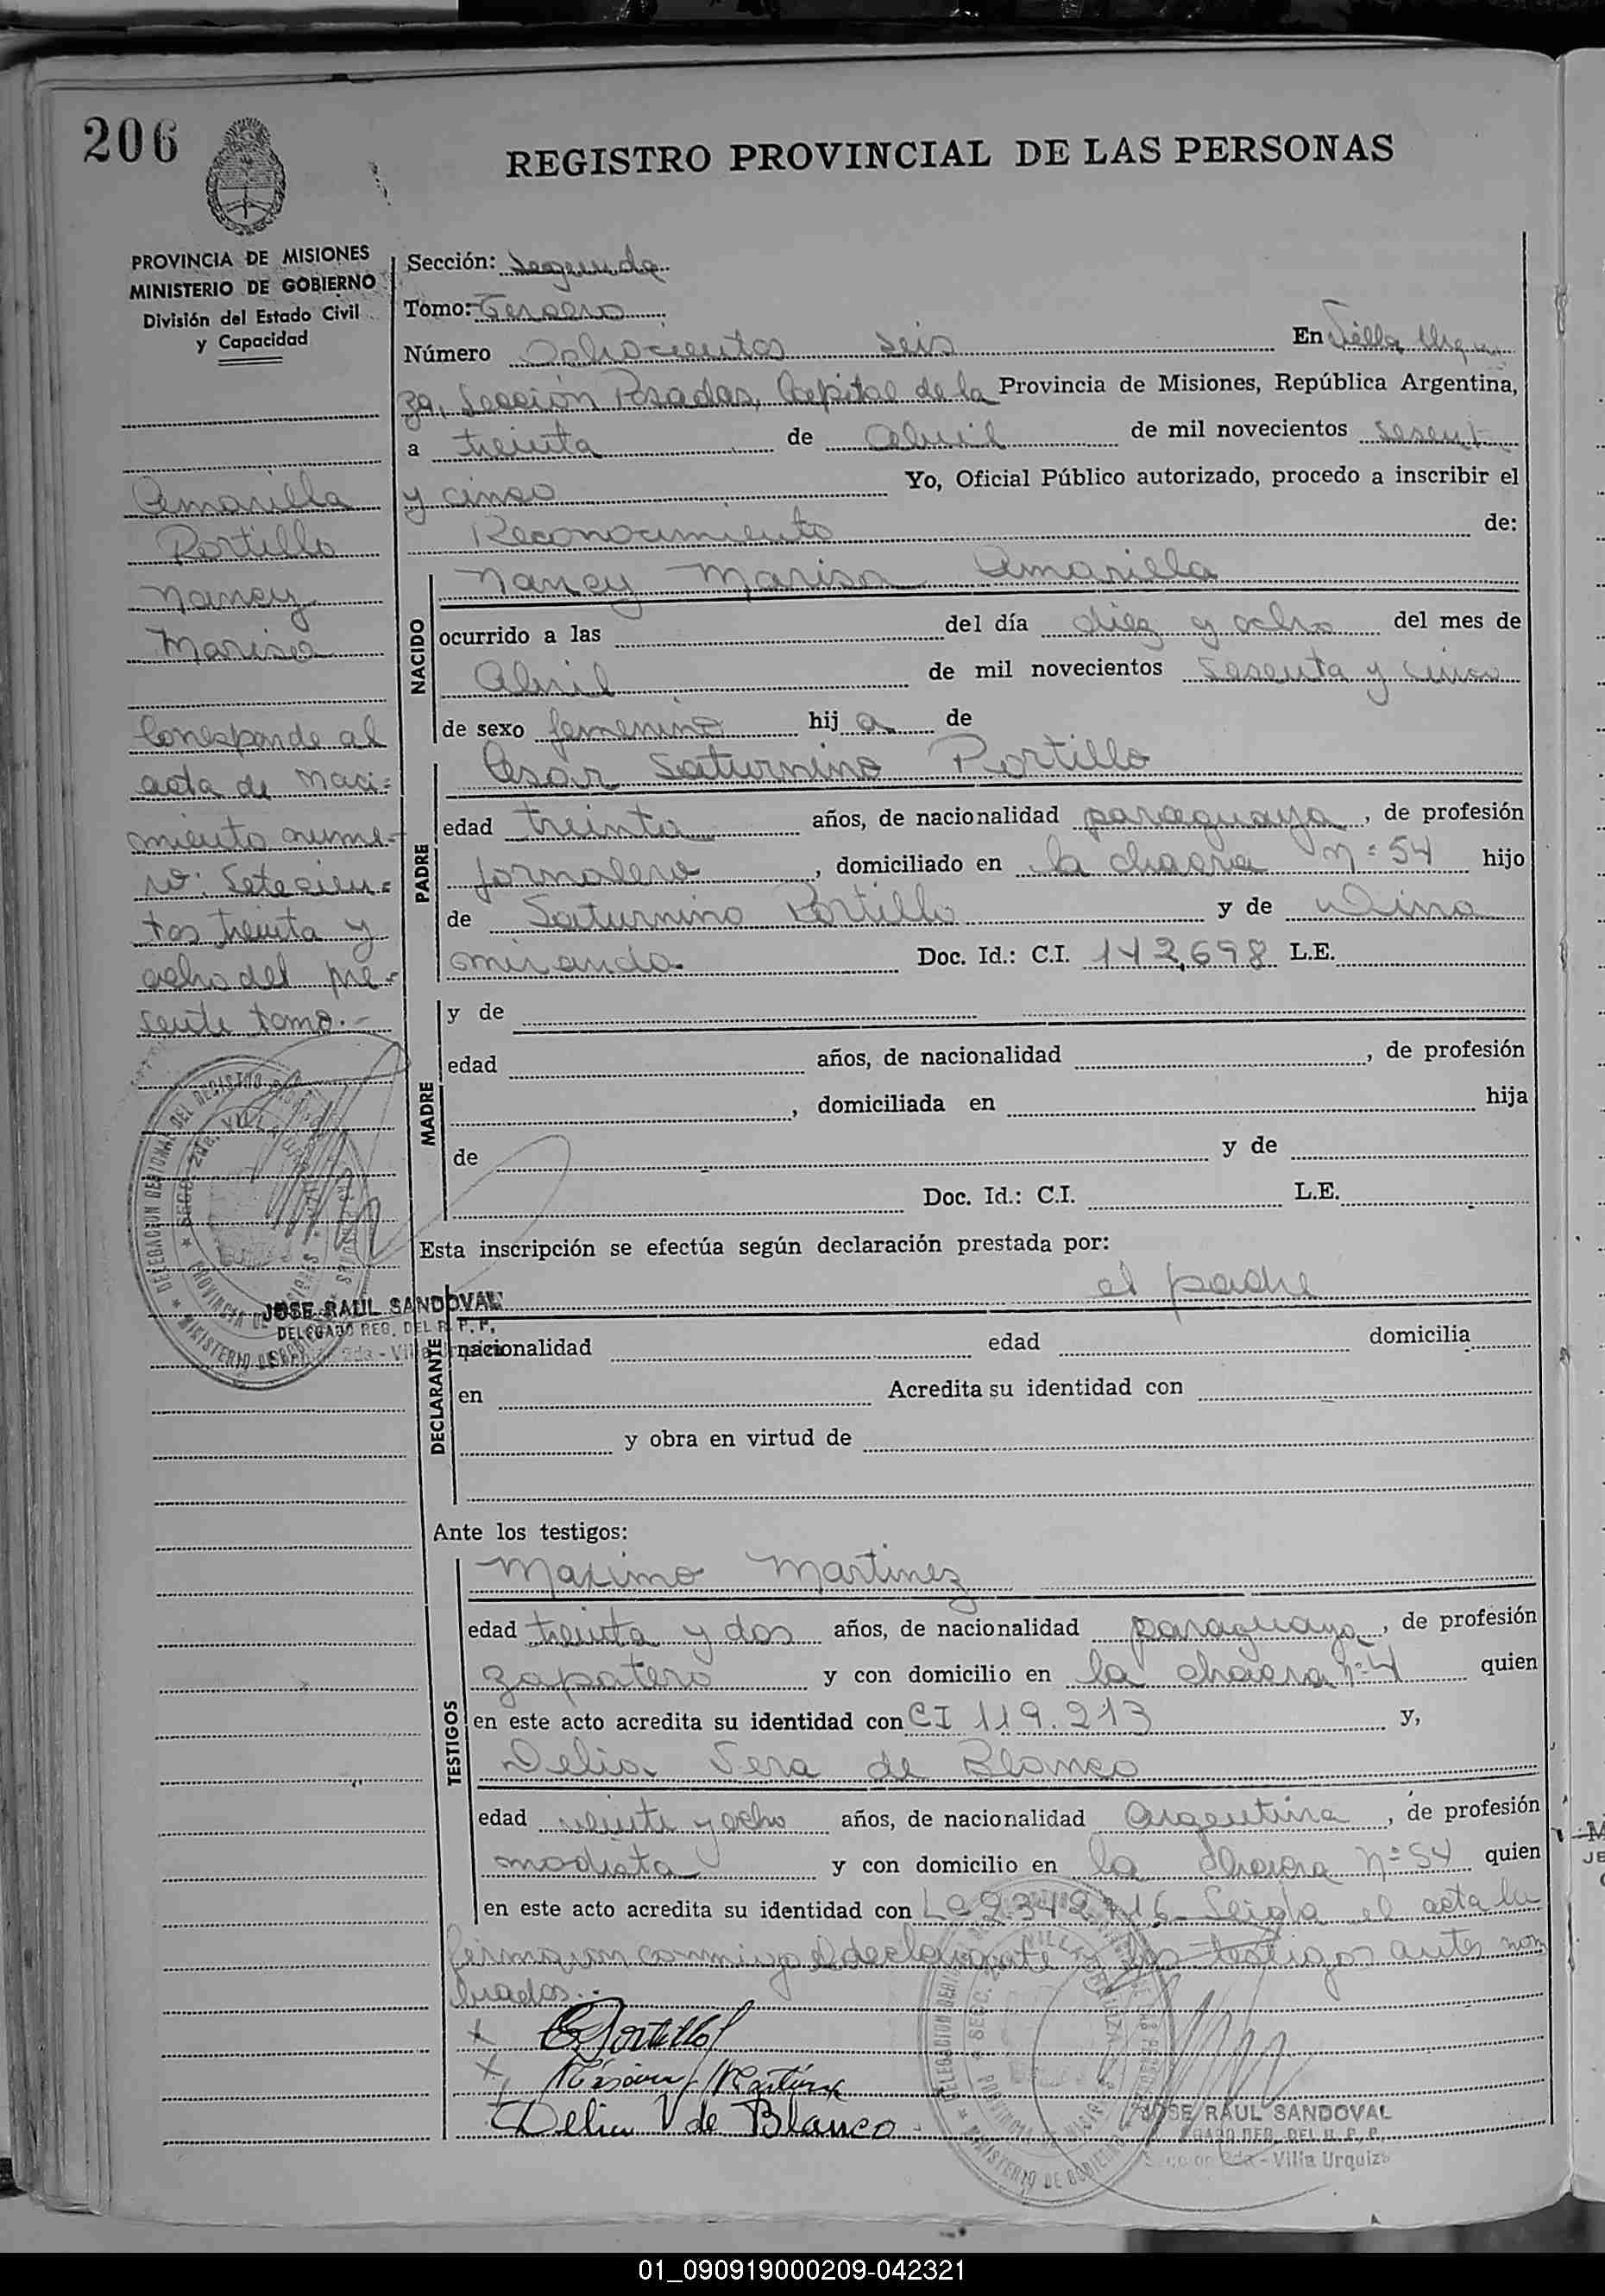 206
REGISTRO PROVINCIAL DE LAS PERSONAS
PROVINCIA DE MISIONES
MINISTERIO DE GOBIERNO
División del Estado Civil
y Capacidad
Amarilla
Portillo
Nancy
Marisa
Corresponde al
acta de naci=
miento nume-
ro: Setecien=
tos treinta y
ocho del pre-
sente tomo.-
JOSE RAUL SANDOVAL
DELEGADO REG. DEL R. P. P.
Sección: Segunda
Tomo: Tercero
Número Ochocientos seis En Villa Urqui
za, Sección Posadas, Capital de la Provincia de Misiones, República Argentina,
a treinta de Abril de mil novecientos sesenta
y cinco Yo, Oficial Público autorizado, procedo a inscribir el
Reconocimiento de:
NACIDO
Nancy Marisa Amarilla
ocurrido a las del día diez y ocho del mes de
Abril de mil novecientos sesenta y cinco
de sexo femenino hij a de
PADRE
Cesar Saturnino Portillo
edad treinta años, de nacionalidad paraguaya, de profesión
jornalero, domiciliado en la chacra nº 54 hijo
de Saturnino Portillo y de Dina
miranda Doc. Id.: C.I. 142,698 L.E.
MADRE
y de
edad años, de nacionalidad , de profesión
, domiciliada en hija
de y de
Doc. Id.: C.I. L.E.
Esta inscripción se efectúa según declaración prestada por:
DECLARANTE
el padre
nacionalidad edad domicilia
en Acredita su identidad con
y obra en virtud de
Ante los testigos:
TESTIGOS
Maximo Martinez
edad treinta y dos años, de nacionalidad paraguaya, de profesión
zapatero y con domicilio en la chacra nº 4 quien
en este acto acredita su identidad con CI 119.213 y,
Delia Vera de Blanco
edad veinte y ocho años, de nacionalidad Argentina, de profesión
modista y con domicilio en la chacra nº 54 quien
en este acto acredita su identidad con LC Leida el acta la
firmaron conmigo el declarante y los testigos antes nom
brados.
x CPortillo
x Martínez
x Delia V de Blanco
JOSE RAUL SANDOVAL
DELEGADO REG. DEL R. P. P.
Sección 2da - Villa Urquiza
01_090919000209-042321